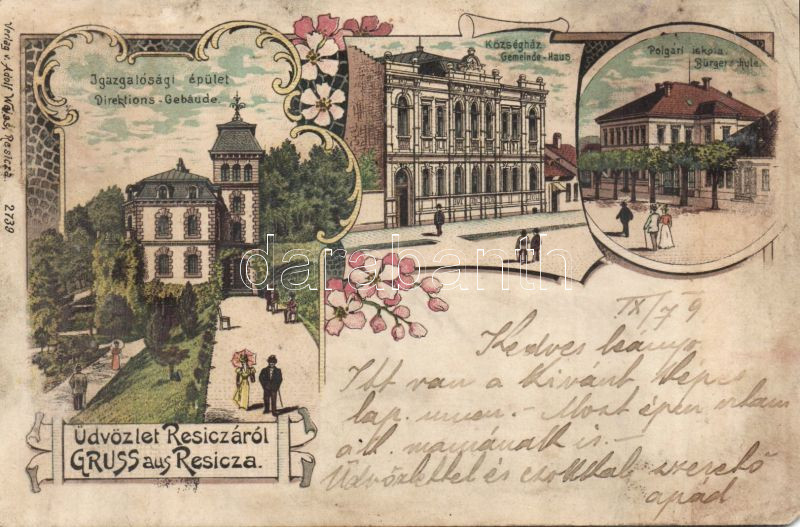 Verlag v. Adolf Weiss, Resicza. 2739
Igazgatósági épület
Direktions-Gebäude.
Községház
Gemeinde-Haus
Polgári iskola.
Bürgerschule.
darabanth
IX/7 9
Kedves
Itt van a kivánt képes
lap. - Most épen irtam
is. -
Üdvözlettel és csokkal szerető
apád
Üdvözlet Resiczáról
GRUSS aus Resicza.